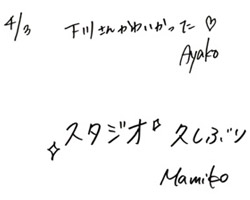 4/3 下川さんかわいかった♡
Ayako
スタジオ 久しぶり
Mamiko